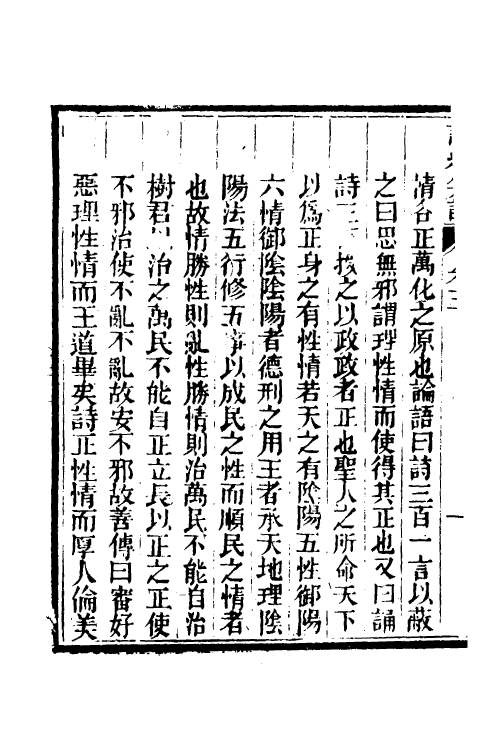 情各正萬化之原也論語曰詩三百一言以蔽
之曰思無邪謂理性情而使得其正也又曰誦
詩三百授之以政政者正也聖人之所命天下
以爲正身之有性情若天之有陰陽五性御陽
六情御陰陰陽者德刑之用王者承天地理陰
陽法五行修五事以成民之性而順民之情者
也故情勝性則亂性勝情則治萬民不能自治
樹君以治之萬民不能自正立長以正之正使
不邪治使不亂不亂故安不邪故善傳曰審好
惡理性情而王道畢矣詩正性情而厚人倫美